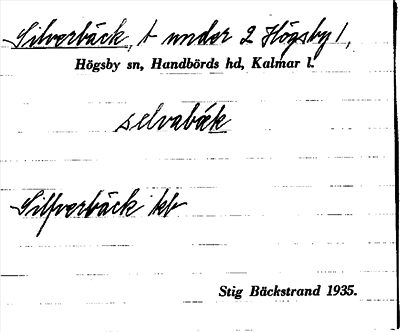 Silverbäck, t under 2 Högsby 1,
Högsby sn, Handbörds hd, Kalmar l.
selvabäk
Silfverbäck kb
Stig Bäckstrand 1935.